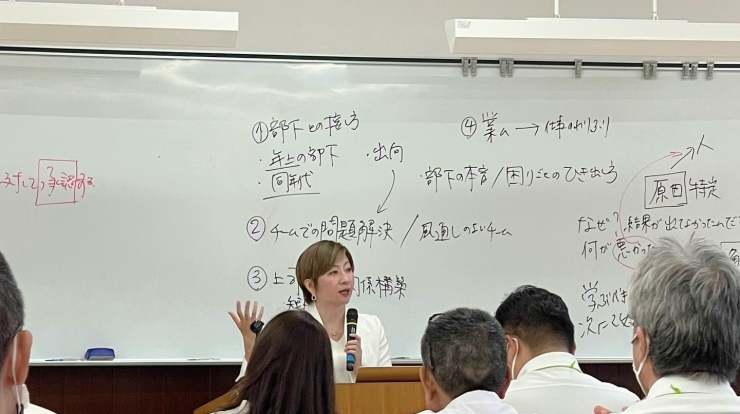 対して、承認する
①部下との接し方
・年上の部下 ・出向
・同年代
②チームでの問題解決/風通しのよいチーム
③上司 関係構築
④業ム→仕事のわりふり
・部下の本音/困りごとのひき出し方
人
原因 特定
なぜ?結果が出なかったんだ
何が悪かった
学ぶべき
次に